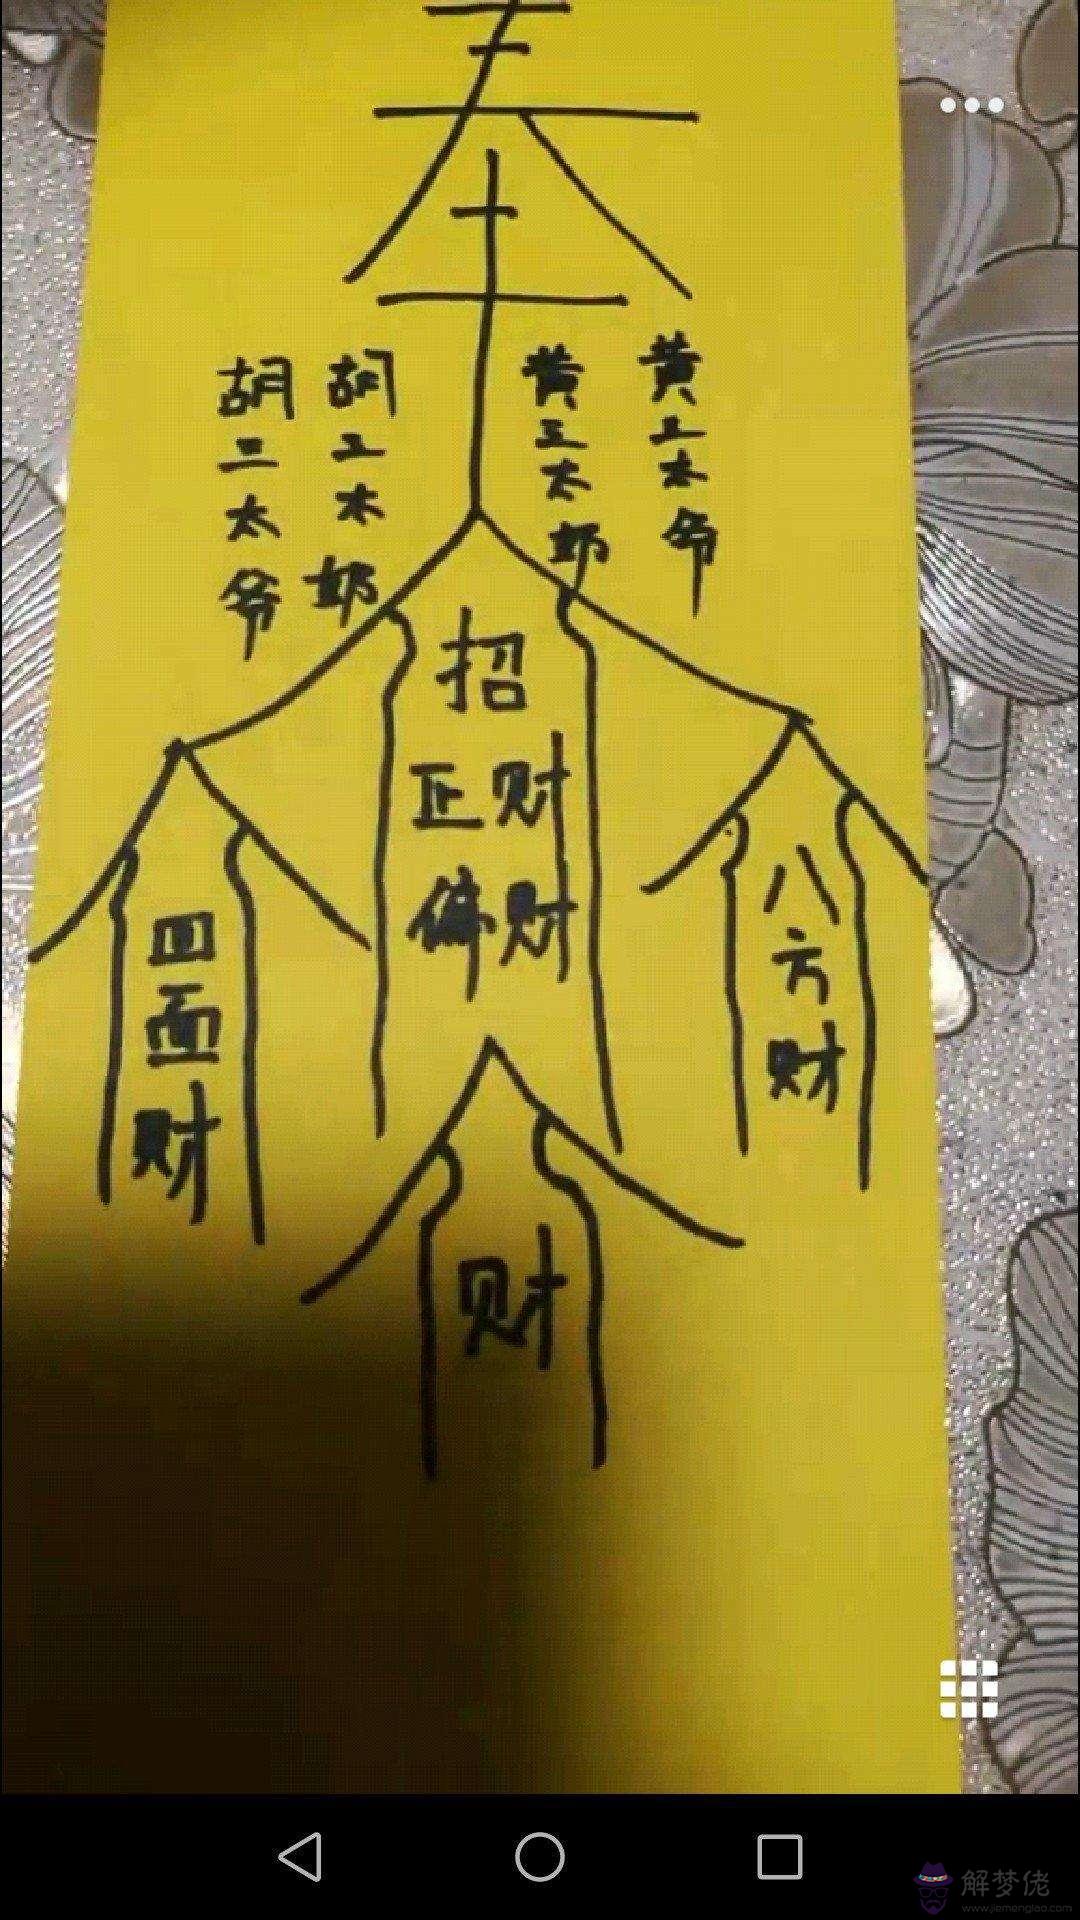 奉
胡二太爷
胡三太奶
黄三太奶
黄三太爷
招
正财
偏财
四面财
八方财
财
解梦佬
www.jiemenglao.com